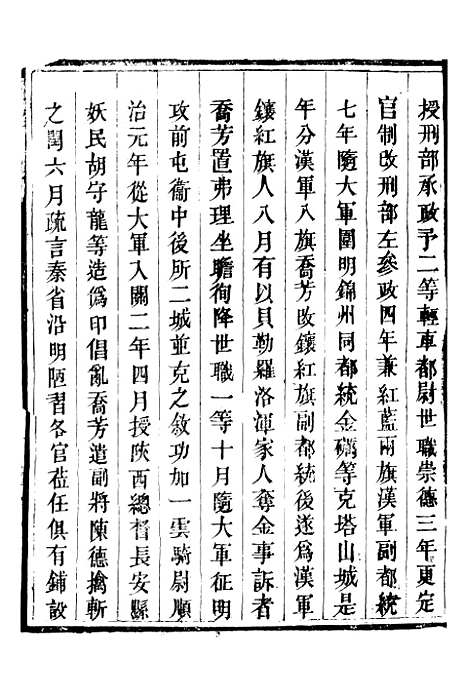 授刑部承政予二等輕車都尉世職崇德三年更定
官制改刑部左參政四年兼紅藍兩旗漢軍副都統
七年隨大軍圍明錦州同都統金礪等克塔山城是
年分漢軍八旗喬芳改鑲紅旗副都統後遂爲漢軍
鑲紅旗人八月有以貝勒羅洛渾家人奪金事訴者
喬芳置弗理坐瞻徇降世職一等十月隨大軍征明
攻前屯衞中後所二城並克之敘功加一雲騎尉順
治元年從大軍入關二年四月授陝西總督長安縣
妖民胡守龍等造僞印倡亂喬芳遣副將陳德擒斬
之閏六月疏言秦省沿明陋習各官莅任俱有鋪設